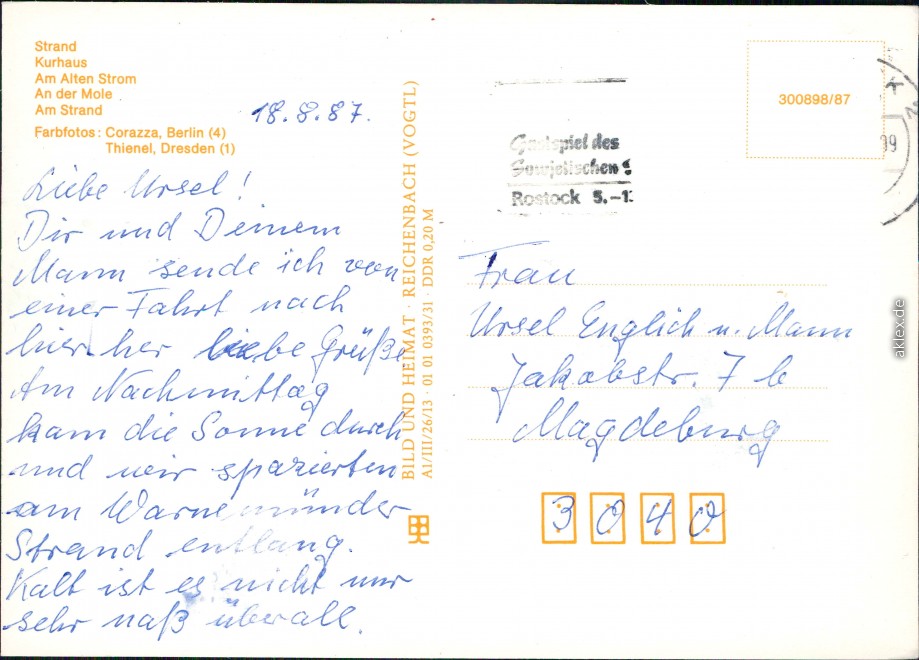 Strand
Kurhaus
Am Alten Strom
An der Mole
Am Strand
Farbfotos: Corazza, Berlin (4)
Thienel, Dresden (1)
18.8.87.
Liebe Ursel!
Dir und Deinem
Mann sende ich von
einer Fahrt nach
hierher liebe Grüße.
Am Nachmittag
kam die Sonne durch
und wir spazierten
am Warnemünder
Strand entlang.
Kalt ist es nicht nur
sehr naß überall.
BILD UND HEIMAT · REICHENBACH (VOGTL)
A1/III/26/13 · 01 01 0393/31 · DDR 0,20 M
Gastspiel des
Sowjetischen
Rostock 5.-1
300898/87
99
Frau
Ursel Englich u. Mann
Jakobstr. 7 b
Magdeburg
3 0 4 0
aklex.de